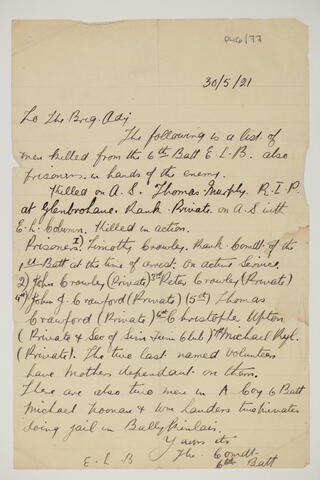 30/5/21
To The Brig. Adj
The following is a list of
men killed from the 6th Batt E. L. B. also
prisoners in hands of the enemy.
Killed on A. S. Thomas Murphy. R. I. P
at Glenbrohane. Rank. Private. on A S with
E. L. Column. Killed in action.
Prisoners. 1) Timothy Crowley. Rank. Comdt. of the
Batt at the time of arrest. On active Service
2) John Crowley (Private) 3rd Peter Crowley (Private)
4th John J. Crawford (Private) (5th) Thomas
Crawford (Private) 6th Christopher Upton
(Private & Sec of Sinn Fein Club) 7th Michael
(Private). The two last named volunteers
have mothers dependant on them.
There are also two men in A Coy 6 Batt
Michael Noonan & Wm Landers two privates
doing jail in Ballykinlar.
Yours etc
The Comdt.
E. L B 6th Batt